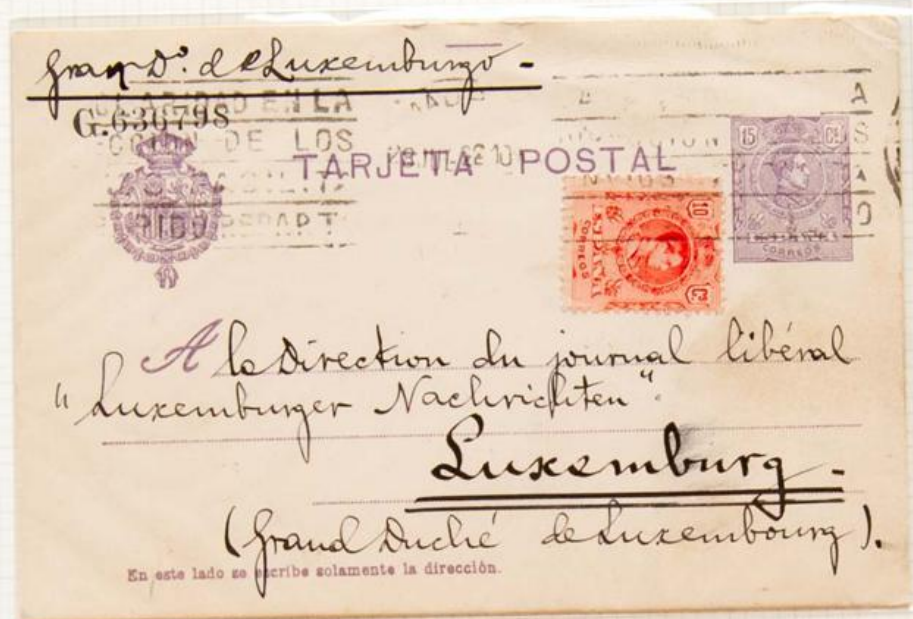 Gran D°. de Luxemburgo -
CLARIDAD EN LA
G.636798
DE LOS
TARJETA POSTAL
15 Cs
CORREOS
10 Cs
CORREOS
REPART
A la Direction du journal libéral
"Luxemburger Nachrichten"
Luxemburg -
(Grand Duché de Luxembourg).
En este lado se escribe solamente la dirección.